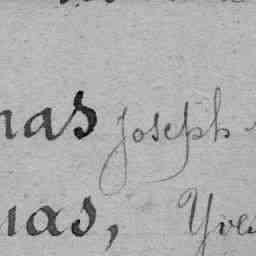 nas Joseph
uas, Yves